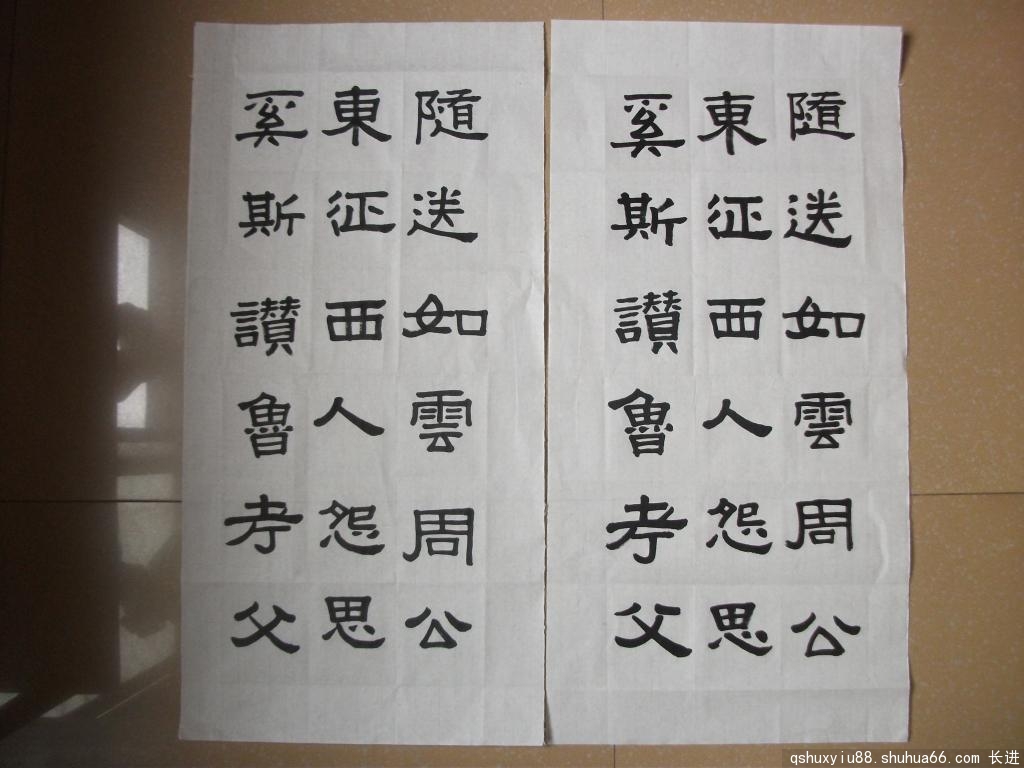 隨送如雲周公
東征西人怨思
奚斯讚魯考父
隨送如雲周公
東征西人怨思
奚斯讚魯考父
qshuxyiu88.shuhua66.com 长进